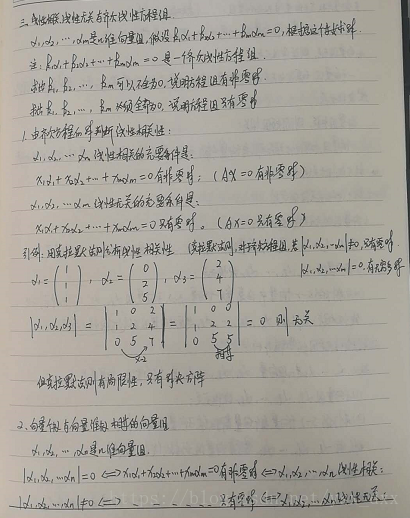 三、线性相关、线性无关与齐次线性方程组
α₁, α₂, ⋯, αm是n维向量组, 假设 k₁α₁+k₂α₂+⋯+kmαm=0, 根据这个去求
注: k₁α₁+k₂α₂+⋯+kmαm=0是一个齐次线性方程组
k₁, k₂, ⋯, km可以不全为0, 说明方程组有非零解
k₁, k₂, ⋯, km必须全部为0, 说明方程组只有零解
1. 由齐次方程的解判断线性相关性:
α₁, α₂, ⋯ αm线性相关的充要条件是:
x₁α₁+x₂α₂+⋯+xmαm=0有非零解; (AX=0有非零解)
α₁, α₂, ⋯, αm线性无关的充要条件是:
x₁α₁+x₂α₂+⋯+xmαm=0只有零解。(AX=0只有零解)
引例: 用克拉默法则分析线性相关性 克拉默法则, 对于齐次方程组, 若 |α₁,α₂,⋯αm|≠0, 只有零解
|α₁,α₂,⋯αm|=0, 有无穷解
α₁=(1 1 1), α₂=(0 2 5), α₃=(2 4 7)
|α₁,α₂,α₃| = |1 0 2 1 2 4 0 5 7| = |1 0 0 1 2 2 0 5 5| = 0 则 无关
×-2 相等
但克拉默法则有局限性, 只有到夹方阵
2. 向量个数与向量维数相等的向量组
α₁, α₂, ⋯, αn是n维向量组
|α₁,α₂,⋯αn|=0 ⟺ x₁α₁+x₂α₂+⋯+xmαm=0有非零解 ⟺ α₁, α₂, ⋯, αn线性相关;
|α₁,α₂,⋯αn|≠0 ⟺ 只有零解 ⟺ α₁,α₂,⋯,αn线性无关